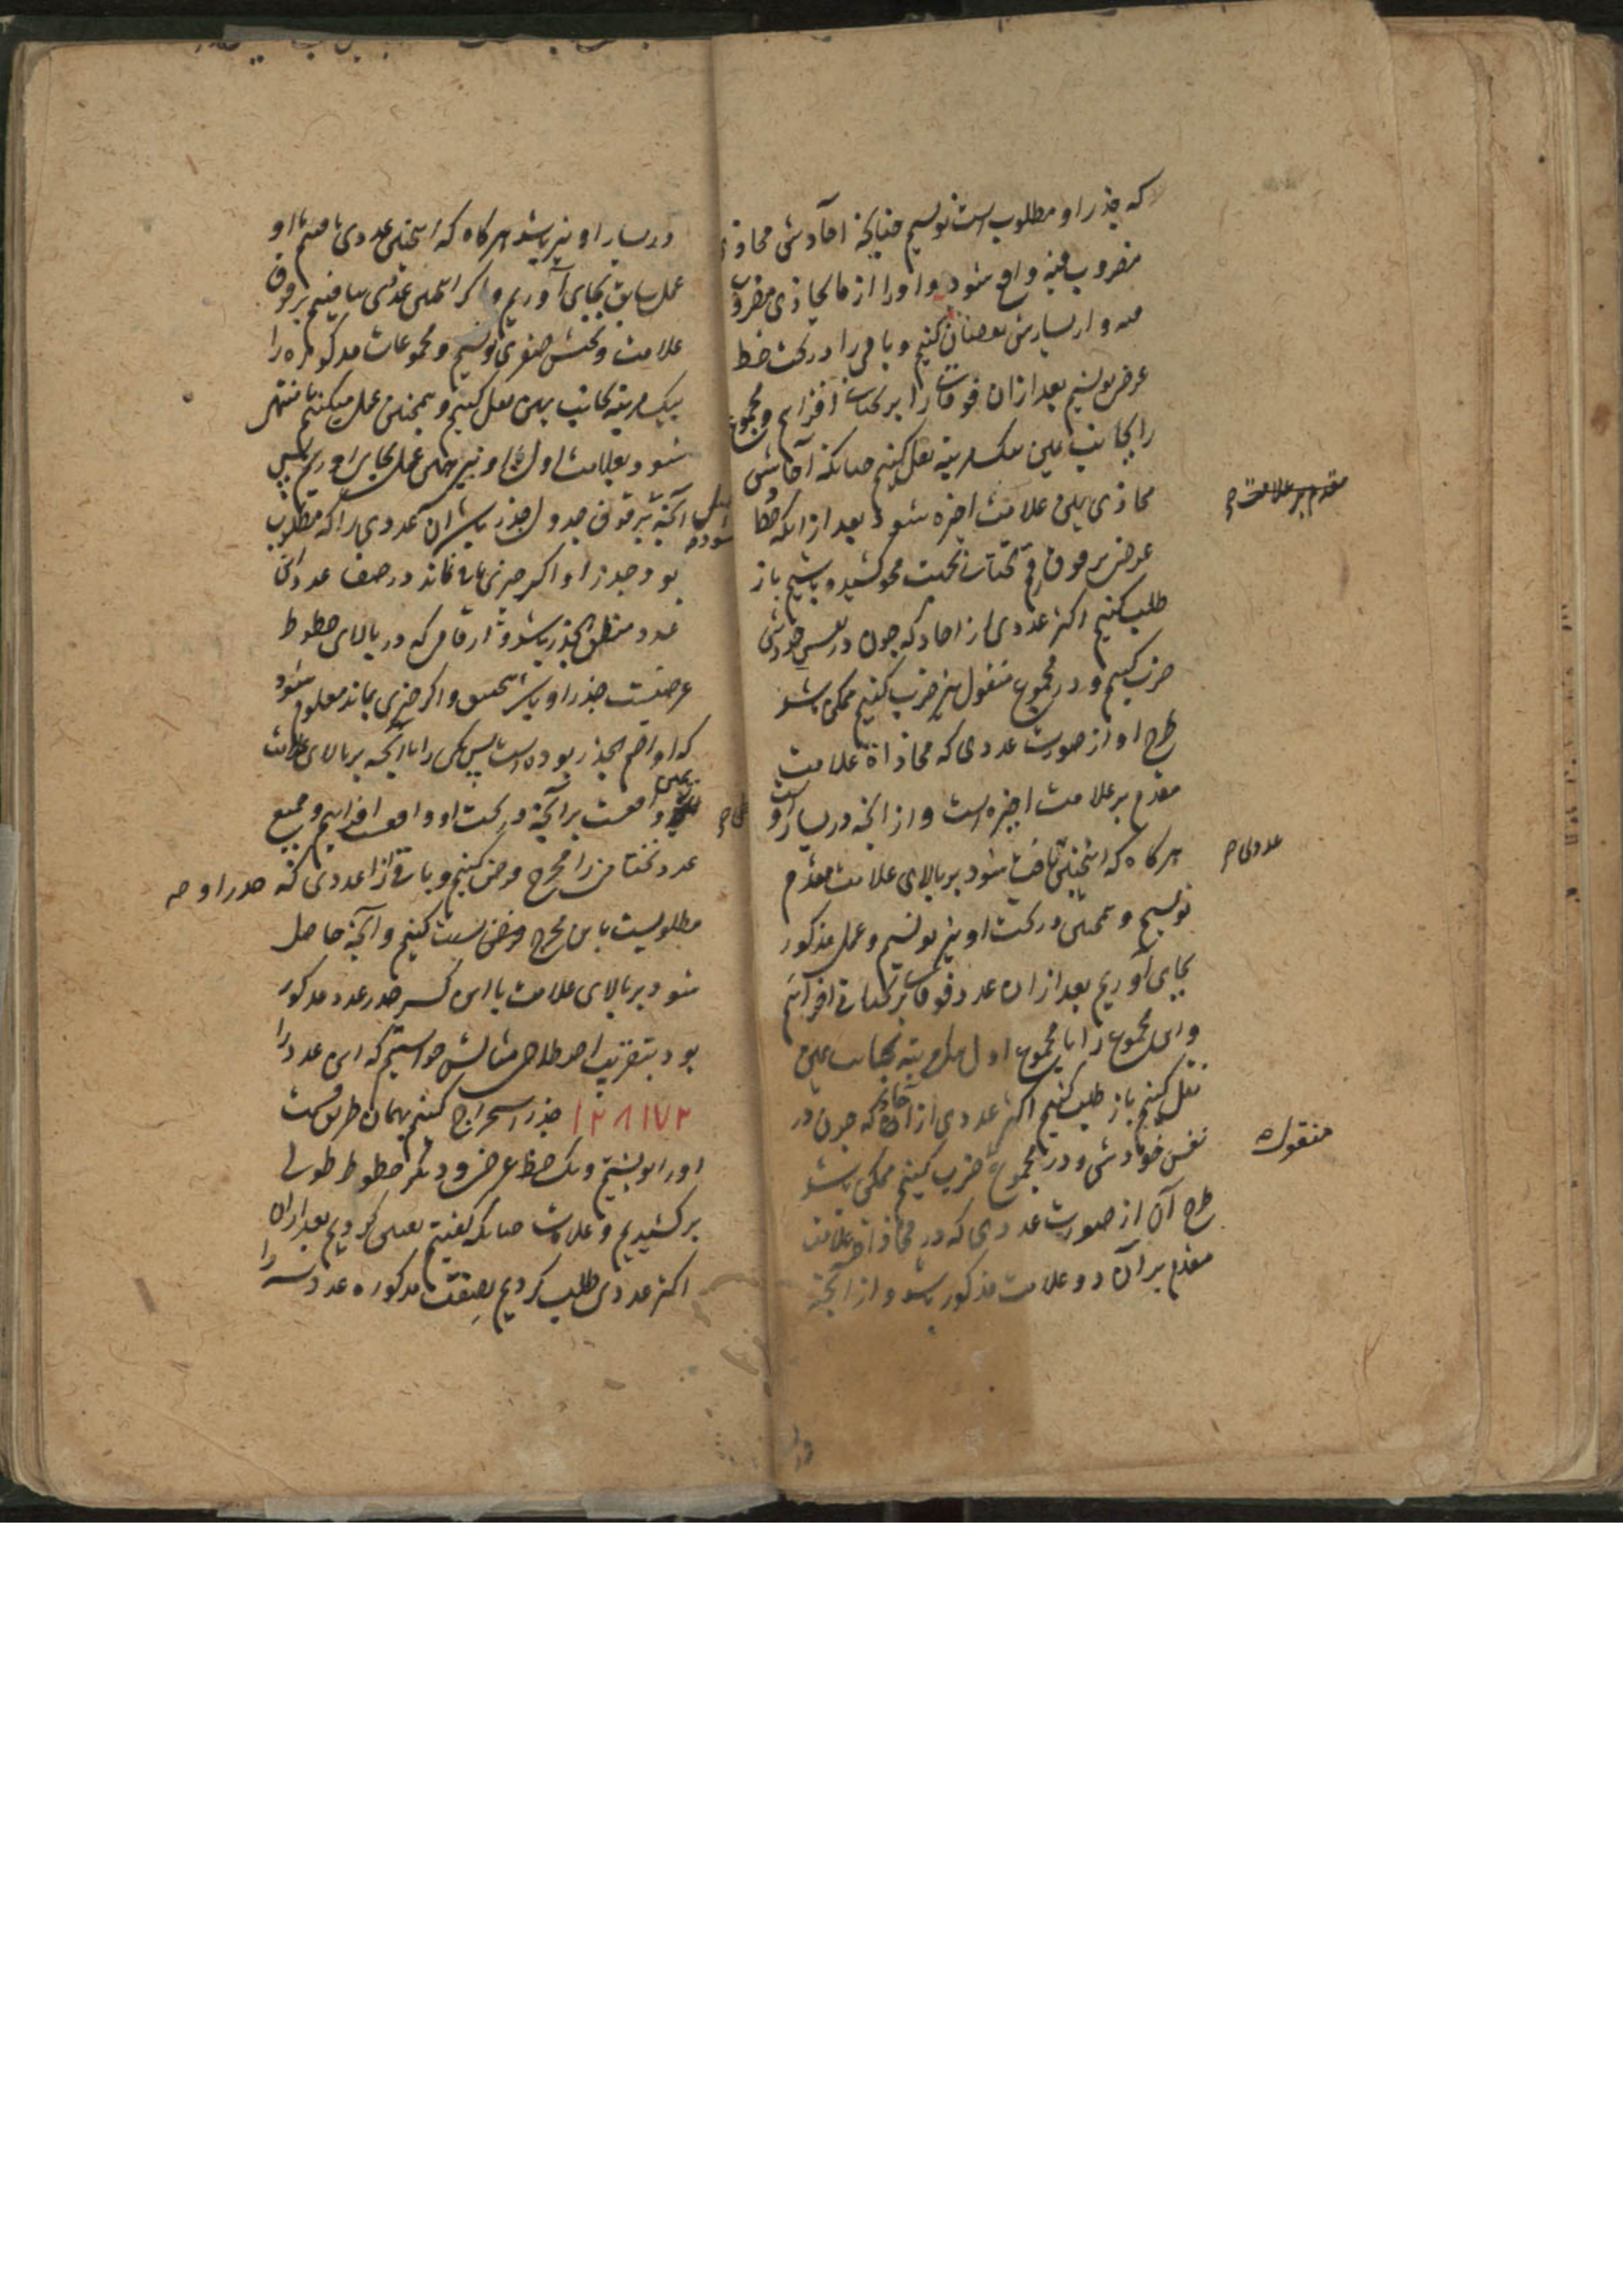 که جذر او مطلوب است نویسیم چنانچه آحادش محاذی
مضروب فیه واقع شود و او را از ما یحاذی مضروب
فیه و از یسارش نقصان کنیم و باقی را در تحت خط
عرضی نویسیم بعد از آن فوقانی را بر تحتانی افزاییم و مجموع
را بجانب یمین یک مرتبه نقل کنیم چنانکه آحادش
محاذی یمین علامت اخیره شود بعد از آنکه خطا
عرضی بر فوق رقم تحتانی نخست محو کشیده باشیم باز
طلب کنیم اکثر عددی از آحاد که چون در نفس خودش
ضرب کنیم و در مجموع منقول نیز ضرب کنیم ممکن باشد
طرح او از صورت عددی که محاذاة علامت
مقدم بر علامت اخیره است و از آنچه در یسار اوست
هر گاه که اینچنین یافت شود بر بالای علامت مقدم
نویسیم و همچنین در تحت او نیز نویسیم و عمل مذکور
بجای آوریم بعد از آن عدد فوقانی بر تحتانی افزاییم
و این مجموع را با مجموع اول یک مرتبه بجانب یمین
نقل کنیم باز طلب کنیم اکثر عددی از آحاد که چون در
نفس خودش و در مجموع ضرب کنیم ممکن باشد
طرح آن از صورت عددی که در محاذاة علامت
مقدم بر آن دو علامت مذکور باشد و از آنچه
مقدم بر علامت
عددی
منقول
در یسار او نیز باشد هر گاه که اینچنین عددی یافتیم با او
عمل سابق بجای آوریم و اگر اینچنین عددی نیافتیم بر فوق
علامت و تحتش صفری نویسیم و مجموعات مذکوره را
یک مرتبه بجانب یمین نقل کنیم و همچنین عمل میکنیم تا منتهی
شود بعلامت اول با او نیز همین عمل بجای آوریم پس
آنچه بر فوق جدول جذر باشد آن عددی را که مطلوب
بود جذر او اگر چیزی باقی نماند در صف عدد آن
عدد منطق الجذر باشد و ارقامی که در بالای خطوط
عرضیست جذر او باشد بتحقیق و اگر چیزی بماند معلوم شود
که او اصم الجذر بوده است پس یکی را با آنچه بر بالای علامت
واقعست بر آنچه در تحت او واقعست افزاییم و جمیع
عدد تحتانی را مخرج فرض کنیم و باقی را از عددی که جذر او
مطلوبست با این مخرج فرضی نسبت کنیم و آنچه حاصل
شود بر بالای علامت با این کسر جذر عدد مذکور
بود بتقریب اصطلاحی مثالش خواستیم که این عدد را
۱۲۸۱۷۲ جذر استخراج کنیم بهمان طریق قسمت
او را نوشتیم و یک خط عرضی و دیگر خطوط طولی
بر کشیدیم و علامات چنانکه گفتیم تعیین کردیم بعد از آن
اکثر عددی طلب کردیم بصفت مذکوره عدد سه را